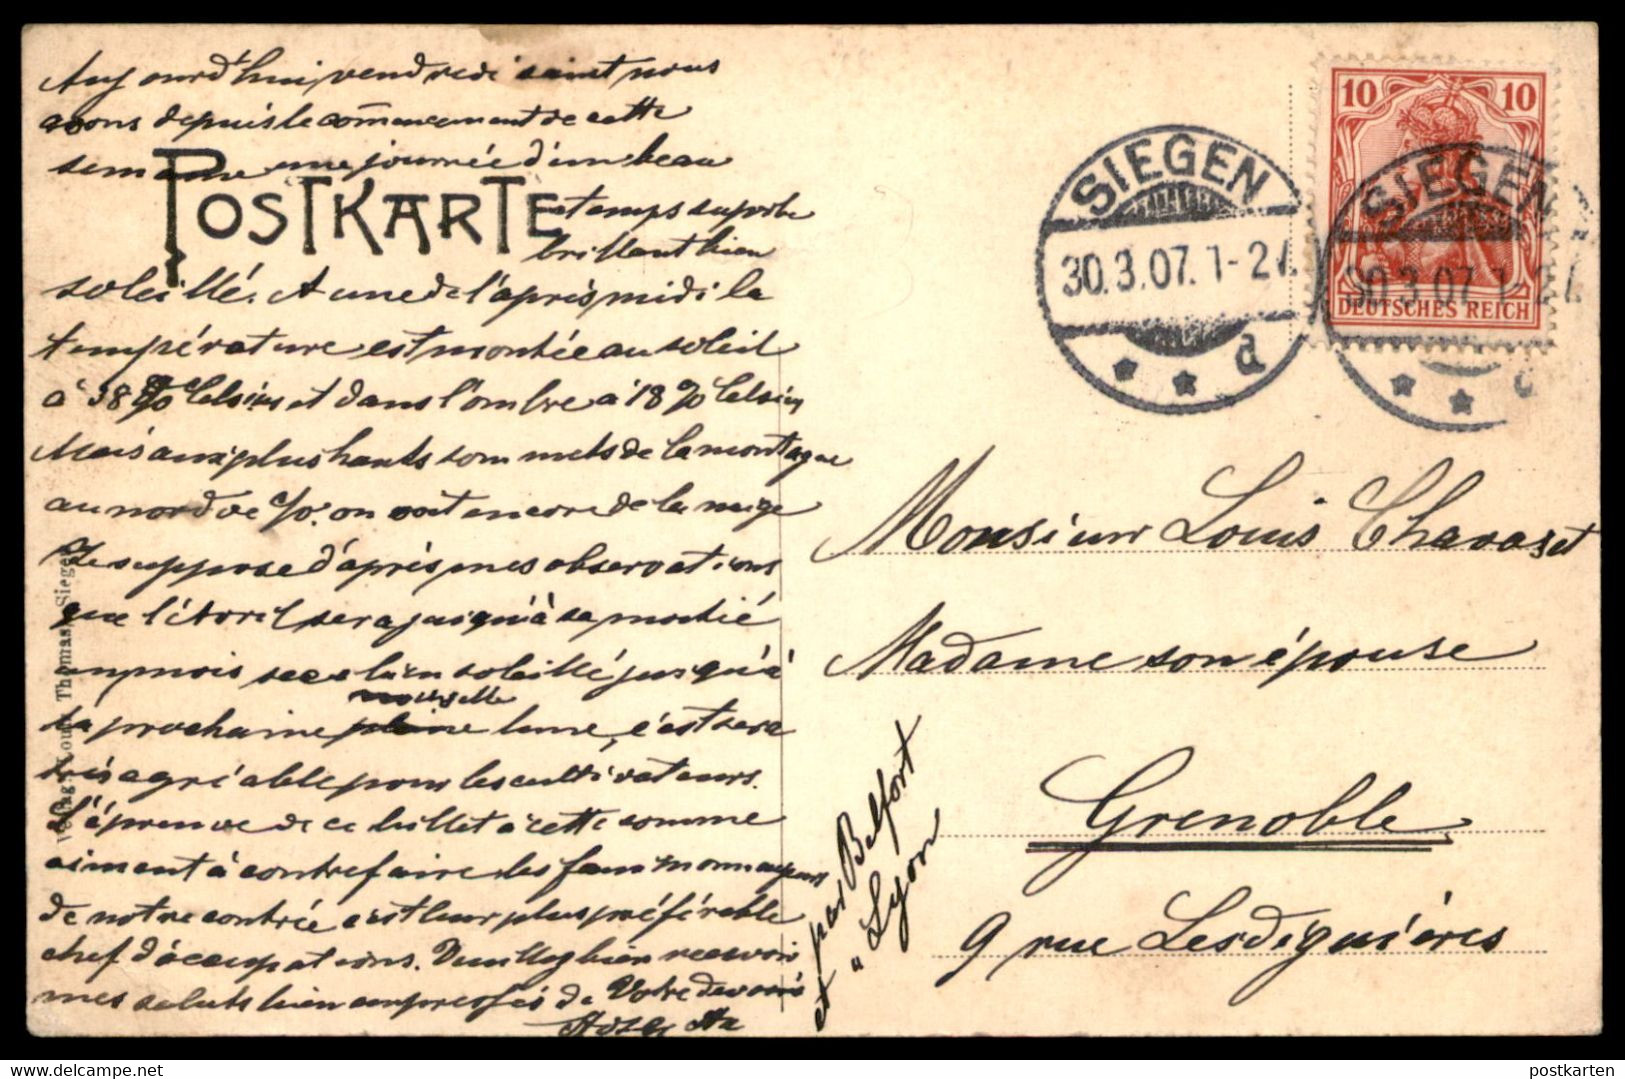 Aujourd'hui vendredi saint nous
avons depuis le com̄mencement de cette
semaine une journée d'un beau
POSTKARTE
temps superbe
brillant bien
soleillé. A une de l'après midi la
température est montée au soleil
à 38 % Celsius et dans l'ombre à 18 % Celsius
Mais aux plus hauts sommets de la montagne
au nord de on voit encore de la neige
Je suppose d'après mes observations
que l'Avril sera jusqu'à sa moitié
un mois sec et bien soleillé jusqu'à
nouvelle
sa prochaine pleine lune, c'est sera
très agréable pour les cultivateurs.
l'épreuve de ce billet à cette somme
aiment à contrefaire les faux monnayeurs
de notre contrée c'est leur plus préférable
chef d'occupations. Veuillez bien recevoir
mes saluts bien empressés de Votre
Verlag: Louis Thomas, Siegen
SIEGEN
30.3.07. 1-2
d
10 10
DEUTSCHES REICH
SIEGEN
30.3.07. 1-2
Monsieur Louis Chavaset
Madame son épouse
Grenoble
9 rue Lesdiguières
et par Belfort
" Lyon
postkarten